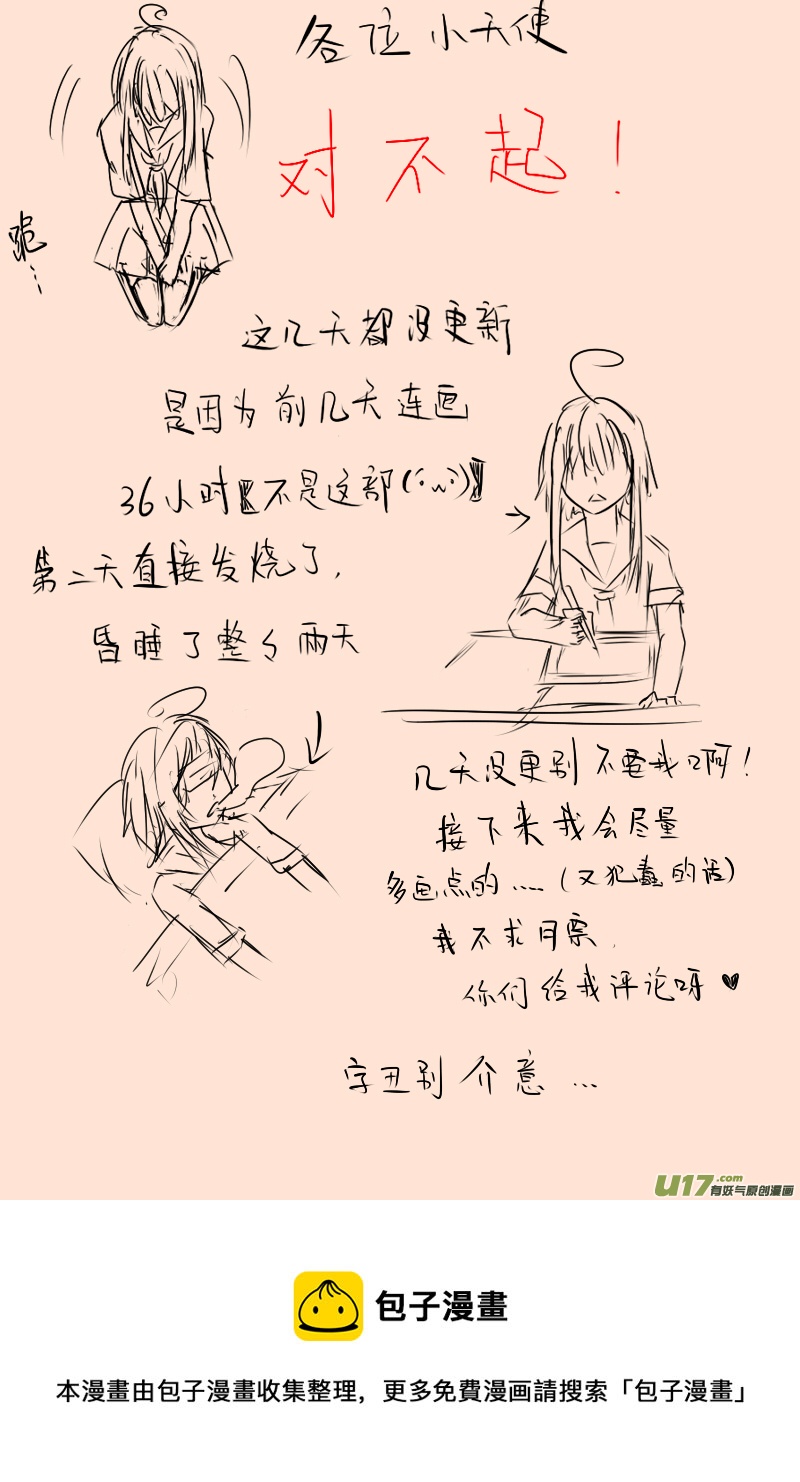 各位小天使
对不起！
跪...
这几天都没更新
是因为前几天连画
36小时【不是这部(´･ω･)】
第二天直接发烧了，
昏睡了整々两天
几天没更别不要我啊！
接下来我会尽量
多画点的……(又犯蠢的话)
我不求月票，
你们给我评论呀♥
字丑别介意…
U17.com
有妖气原创漫画
包子漫畫
本漫畫由包子漫畫收集整理，更多免費漫画請搜索「包子漫畫」